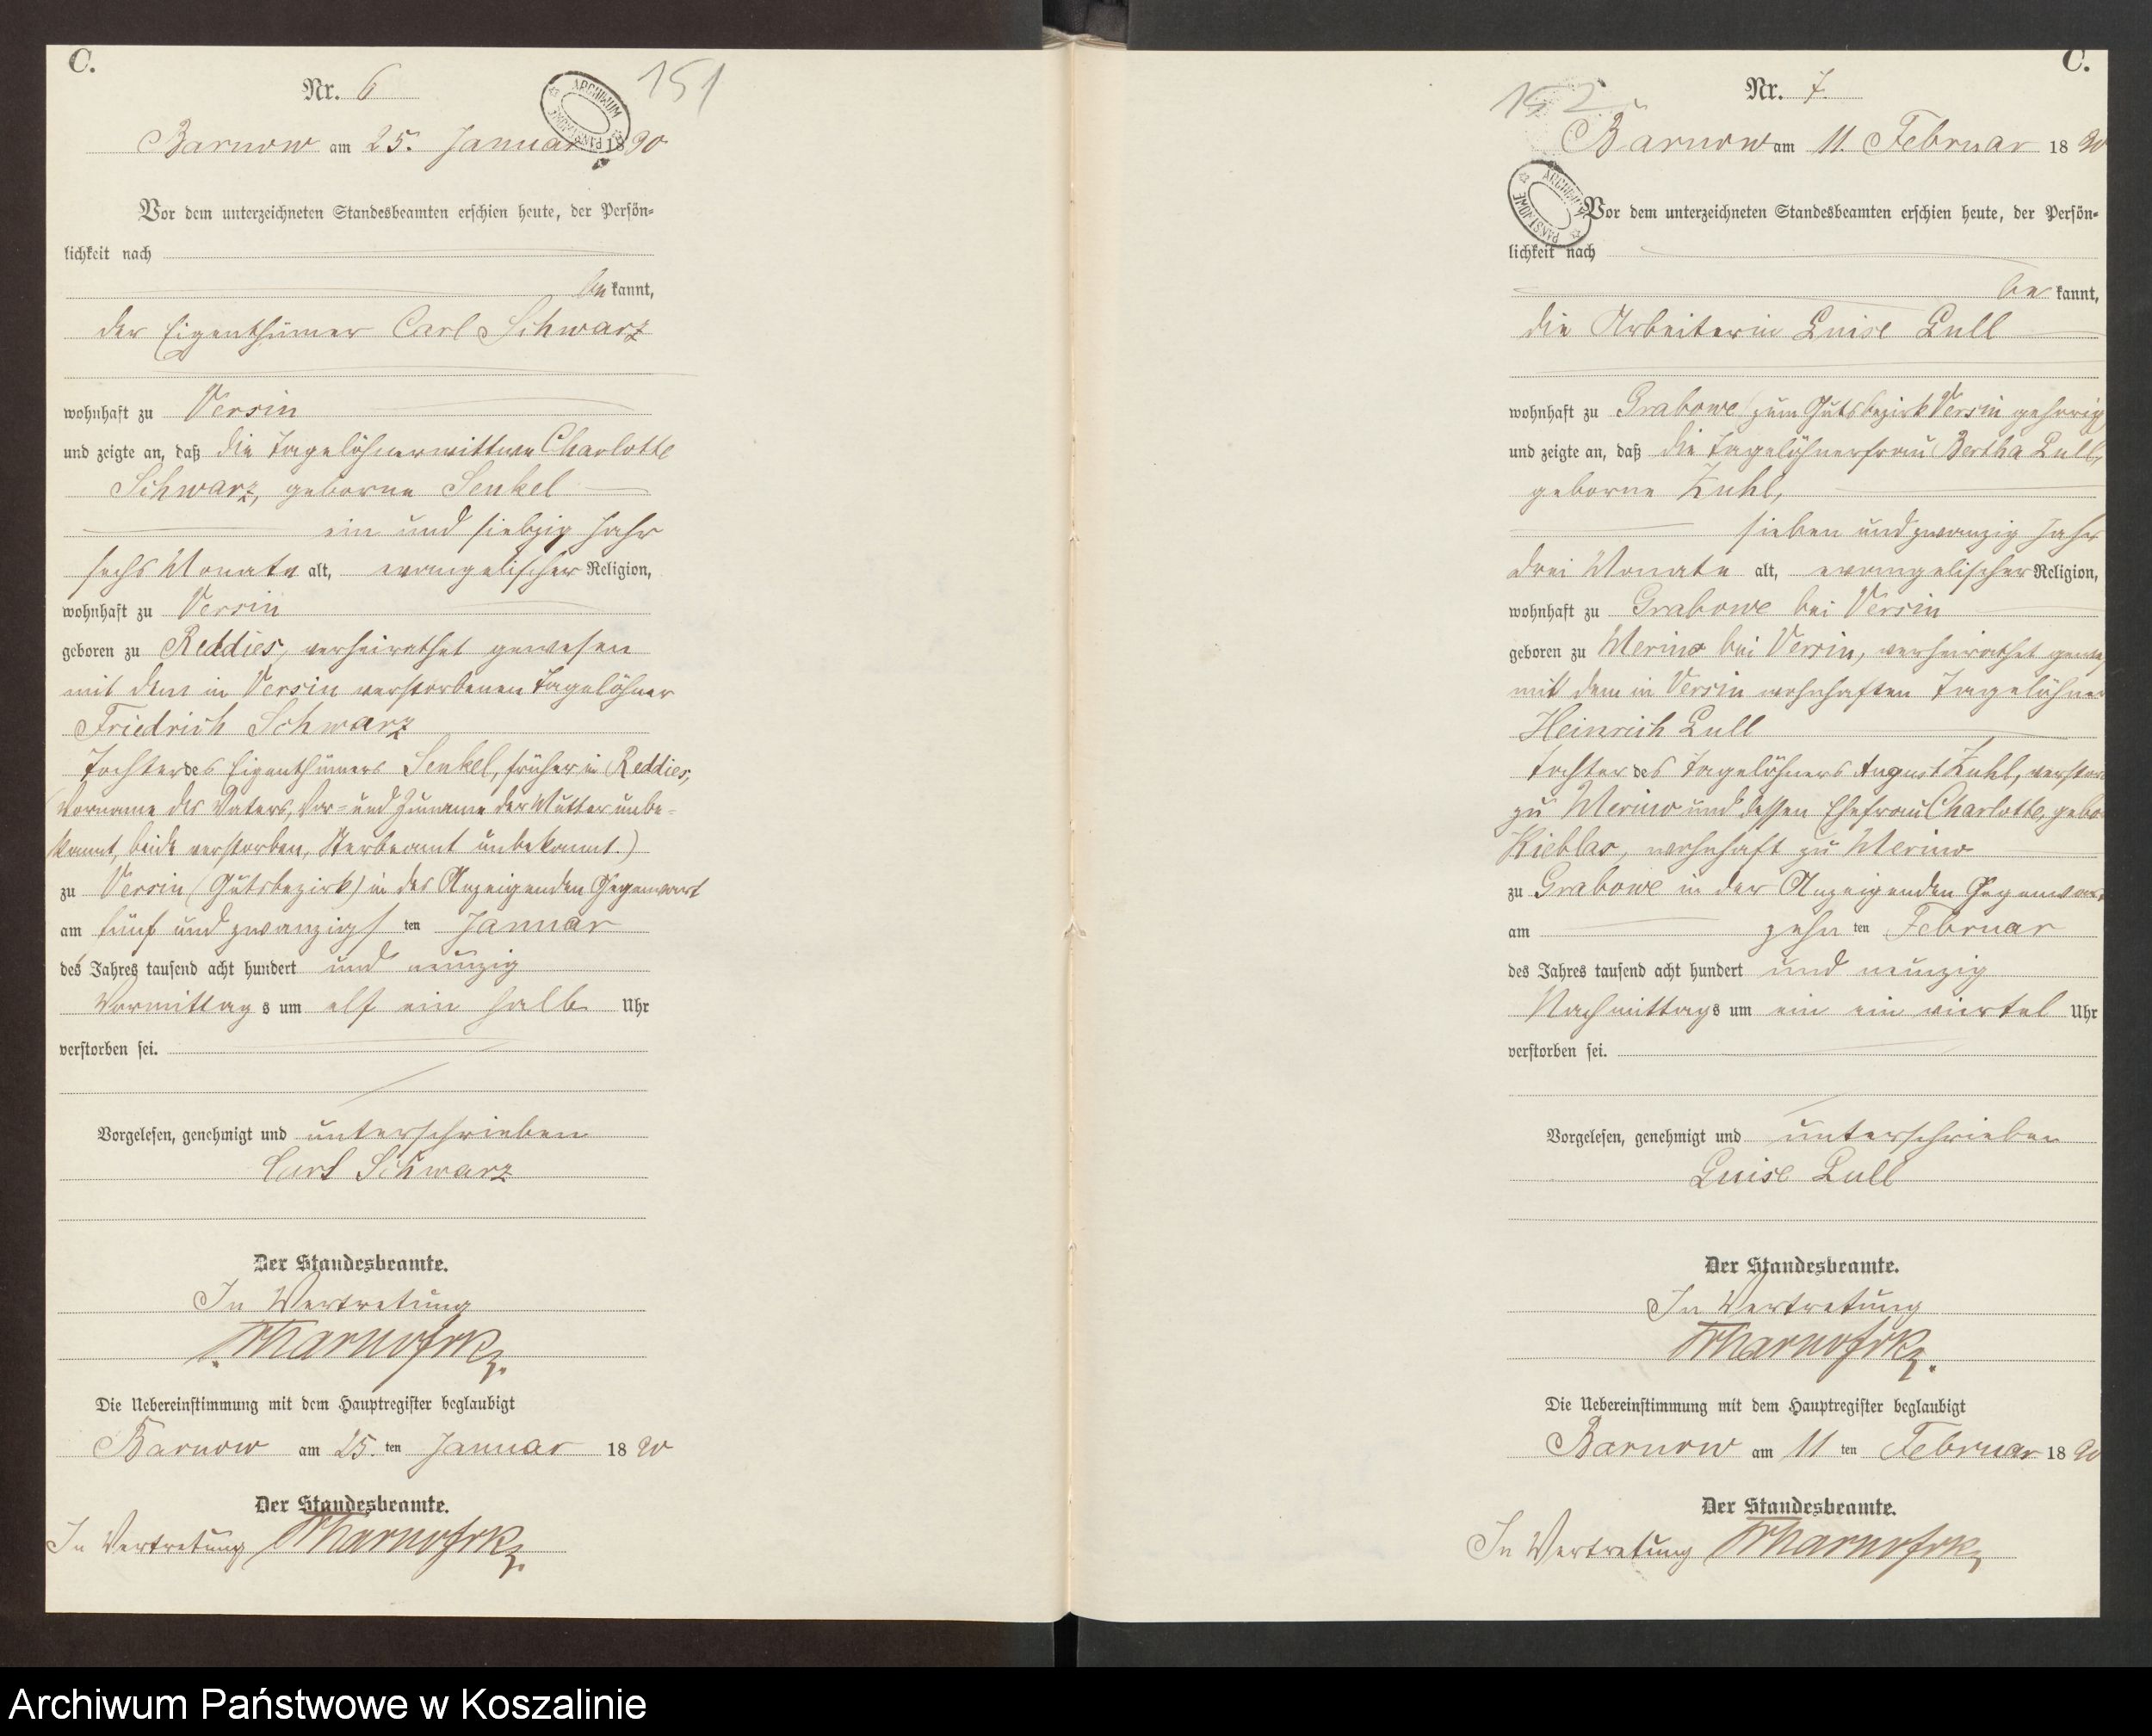 C.
Nr. 6
151
ARCHIWUM PAŃSTWOWE
Barnow am 25. Januar 1890
Vor dem unterzeichneten Standesbeamten erschien heute, der Persön-
lichkeit nach
be kannt,
der Eigenthümer Carl Schwarz
wohnhaft zu Versin
und zeigte an, daß die Tagelöhnerwittwe Charlotte
Schwarz, geborne Senkel
ein und siebzig Jahr
sechs Monate alt, evangelischer Religion,
wohnhaft zu Versin
geboren zu Reddies, verheirathet gewesen
mit dem in Versin verstorbenen Tagelöhner
Friedrich Schwarz
Tochter des Eigenthümers Senkel, früher in Reddies,
(Vorname des Vaters, Vor- und Zuname der Mutter unbe-
kannt, beide verstorben, Sterbeamt unbekannt.)
zu Versin (Gutsbezirk) in des Anzeigenden Gegenwart
am fünf und zwanzigs ten Januar
des Jahres tausend acht hundert und neunzig
Vormittag s um elf ein halb Uhr
verstorben sei.
Vorgelesen, genehmigt und unterschrieben
Carl Schwarz
Der Standesbeamte.
In Vertretung
Die Uebereinstimmung mit dem Hauptregister beglaubigt
Barnow am 25. ten Januar 1890
Der Standesbeamte.
In Vertretung
C.
Nr. 7.
152
Barnow am 11. Februar 1890
ARCHIWUM PAŃSTWOWE
Vor dem unterzeichneten Standesbeamten erschien heute, der Persön-
lichkeit nach
be kannt,
die Arbeiterin Luise Lull
wohnhaft zu Grabowe (zum Gutsbezirk Versin gehörig)
und zeigte an, daß die Tagelöhnerfrau Bertha Lull,
geborne Kuhl,
sieben und zwanzig Jahr
drei Monate alt, evangelischer Religion,
wohnhaft zu Grabowe bei Versin
geboren zu Merino bei Versin, verheirathet
mit dem in Versin wohnhaften Tagelöhner
Heinrich Lull
Tochter des Tagelöhners August Kuhl, verstor
zu Merino und dessen Ehefrau Charlotte, gebo
wohnhaft zu Merino
zu Grabowe in der Anzeigenden Gegenwart
am zehn ten Februar
des Jahres tausend acht hundert und neunzig
Nachmittags um ein ein viertel Uhr
verstorben sei.
Vorgelesen, genehmigt und unterschrieben
Luise Lull
Der Standesbeamte.
In Vertretung
Die Uebereinstimmung mit dem Hauptregister beglaubigt
Barnow am 11 ten Februar 1890
Der Standesbeamte.
In Vertretung
Archiwum Państwowe w Koszalinie